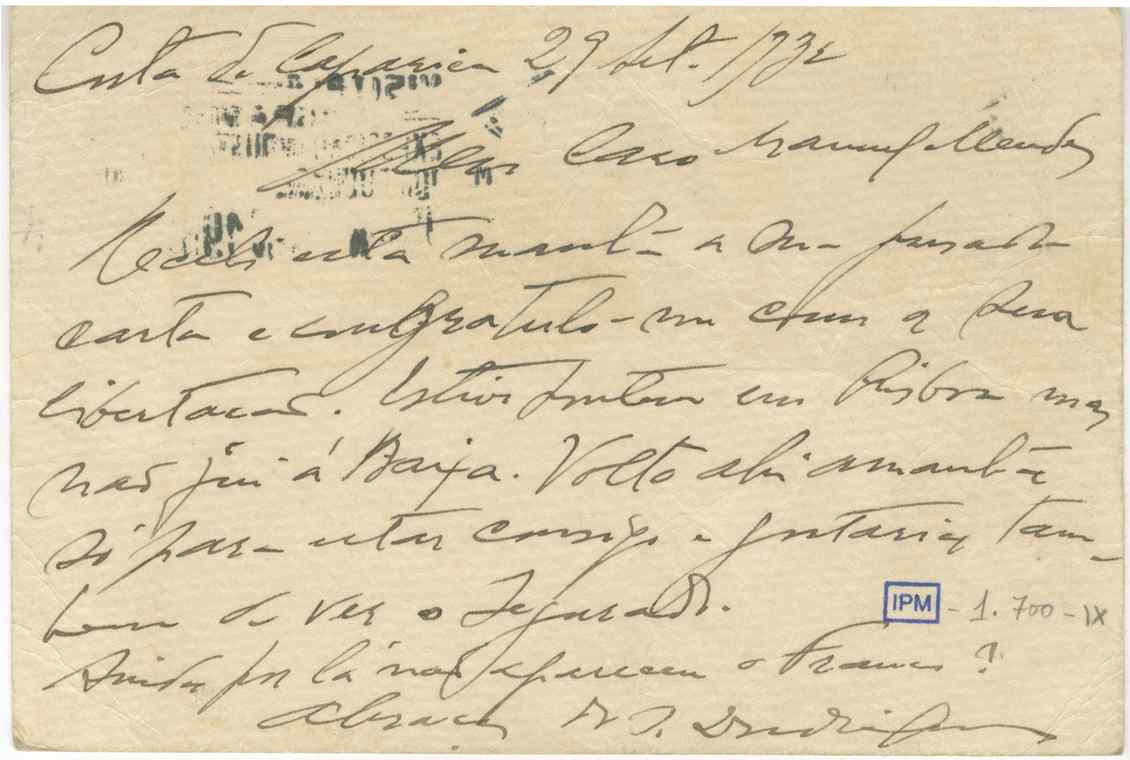 Costa de Caparica 29 Set. 1932
Meu Caro Manuel Mendes
Recebi esta manhã a sua
carta e congratulo-me com a sua
libertacão. Estive em Lisboa mas
não fui á Baixa. Volto ahi amanhã
só para estar consigo e gostaria tam-
bem de ver o Segurado.
IPM - 1.700-IX
Ainda por lá não apareceu o Franco?
Abraça